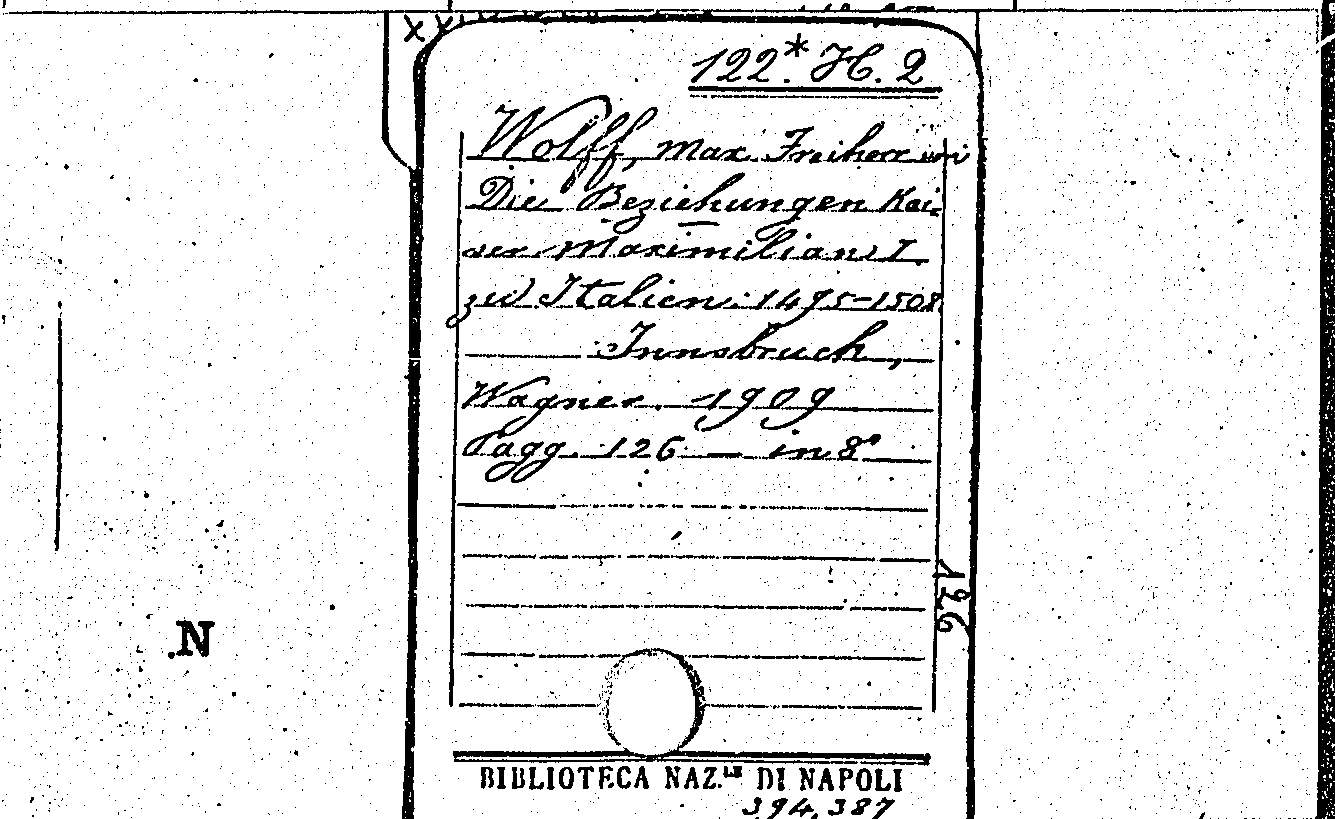 122.* H. 2
Wolff, Max Freiherr von
Die Beziehungen Kai-
ser Maximilians I.
zu Italien: 1495-1508
Innsbruck,
Wagner. 1909
Pagg. 126 — in 8°
N
BIBLIOTECA NAZ.LE DI NAPOLI
394,387